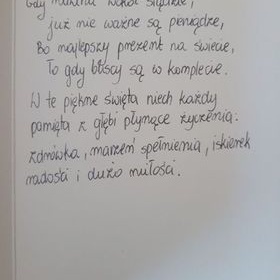 Gdy rodzina wokół siądzie,
już nie ważne są pieniądze,
Bo najlepszy prezent na świecie,
To gdy bliscy są w komplecie.
W te piękne święta niech każdy
pamięta z głębi płynące życzenia:
zdrówka, marzeń spełnienia, iskierek
radości i dużo miłości.